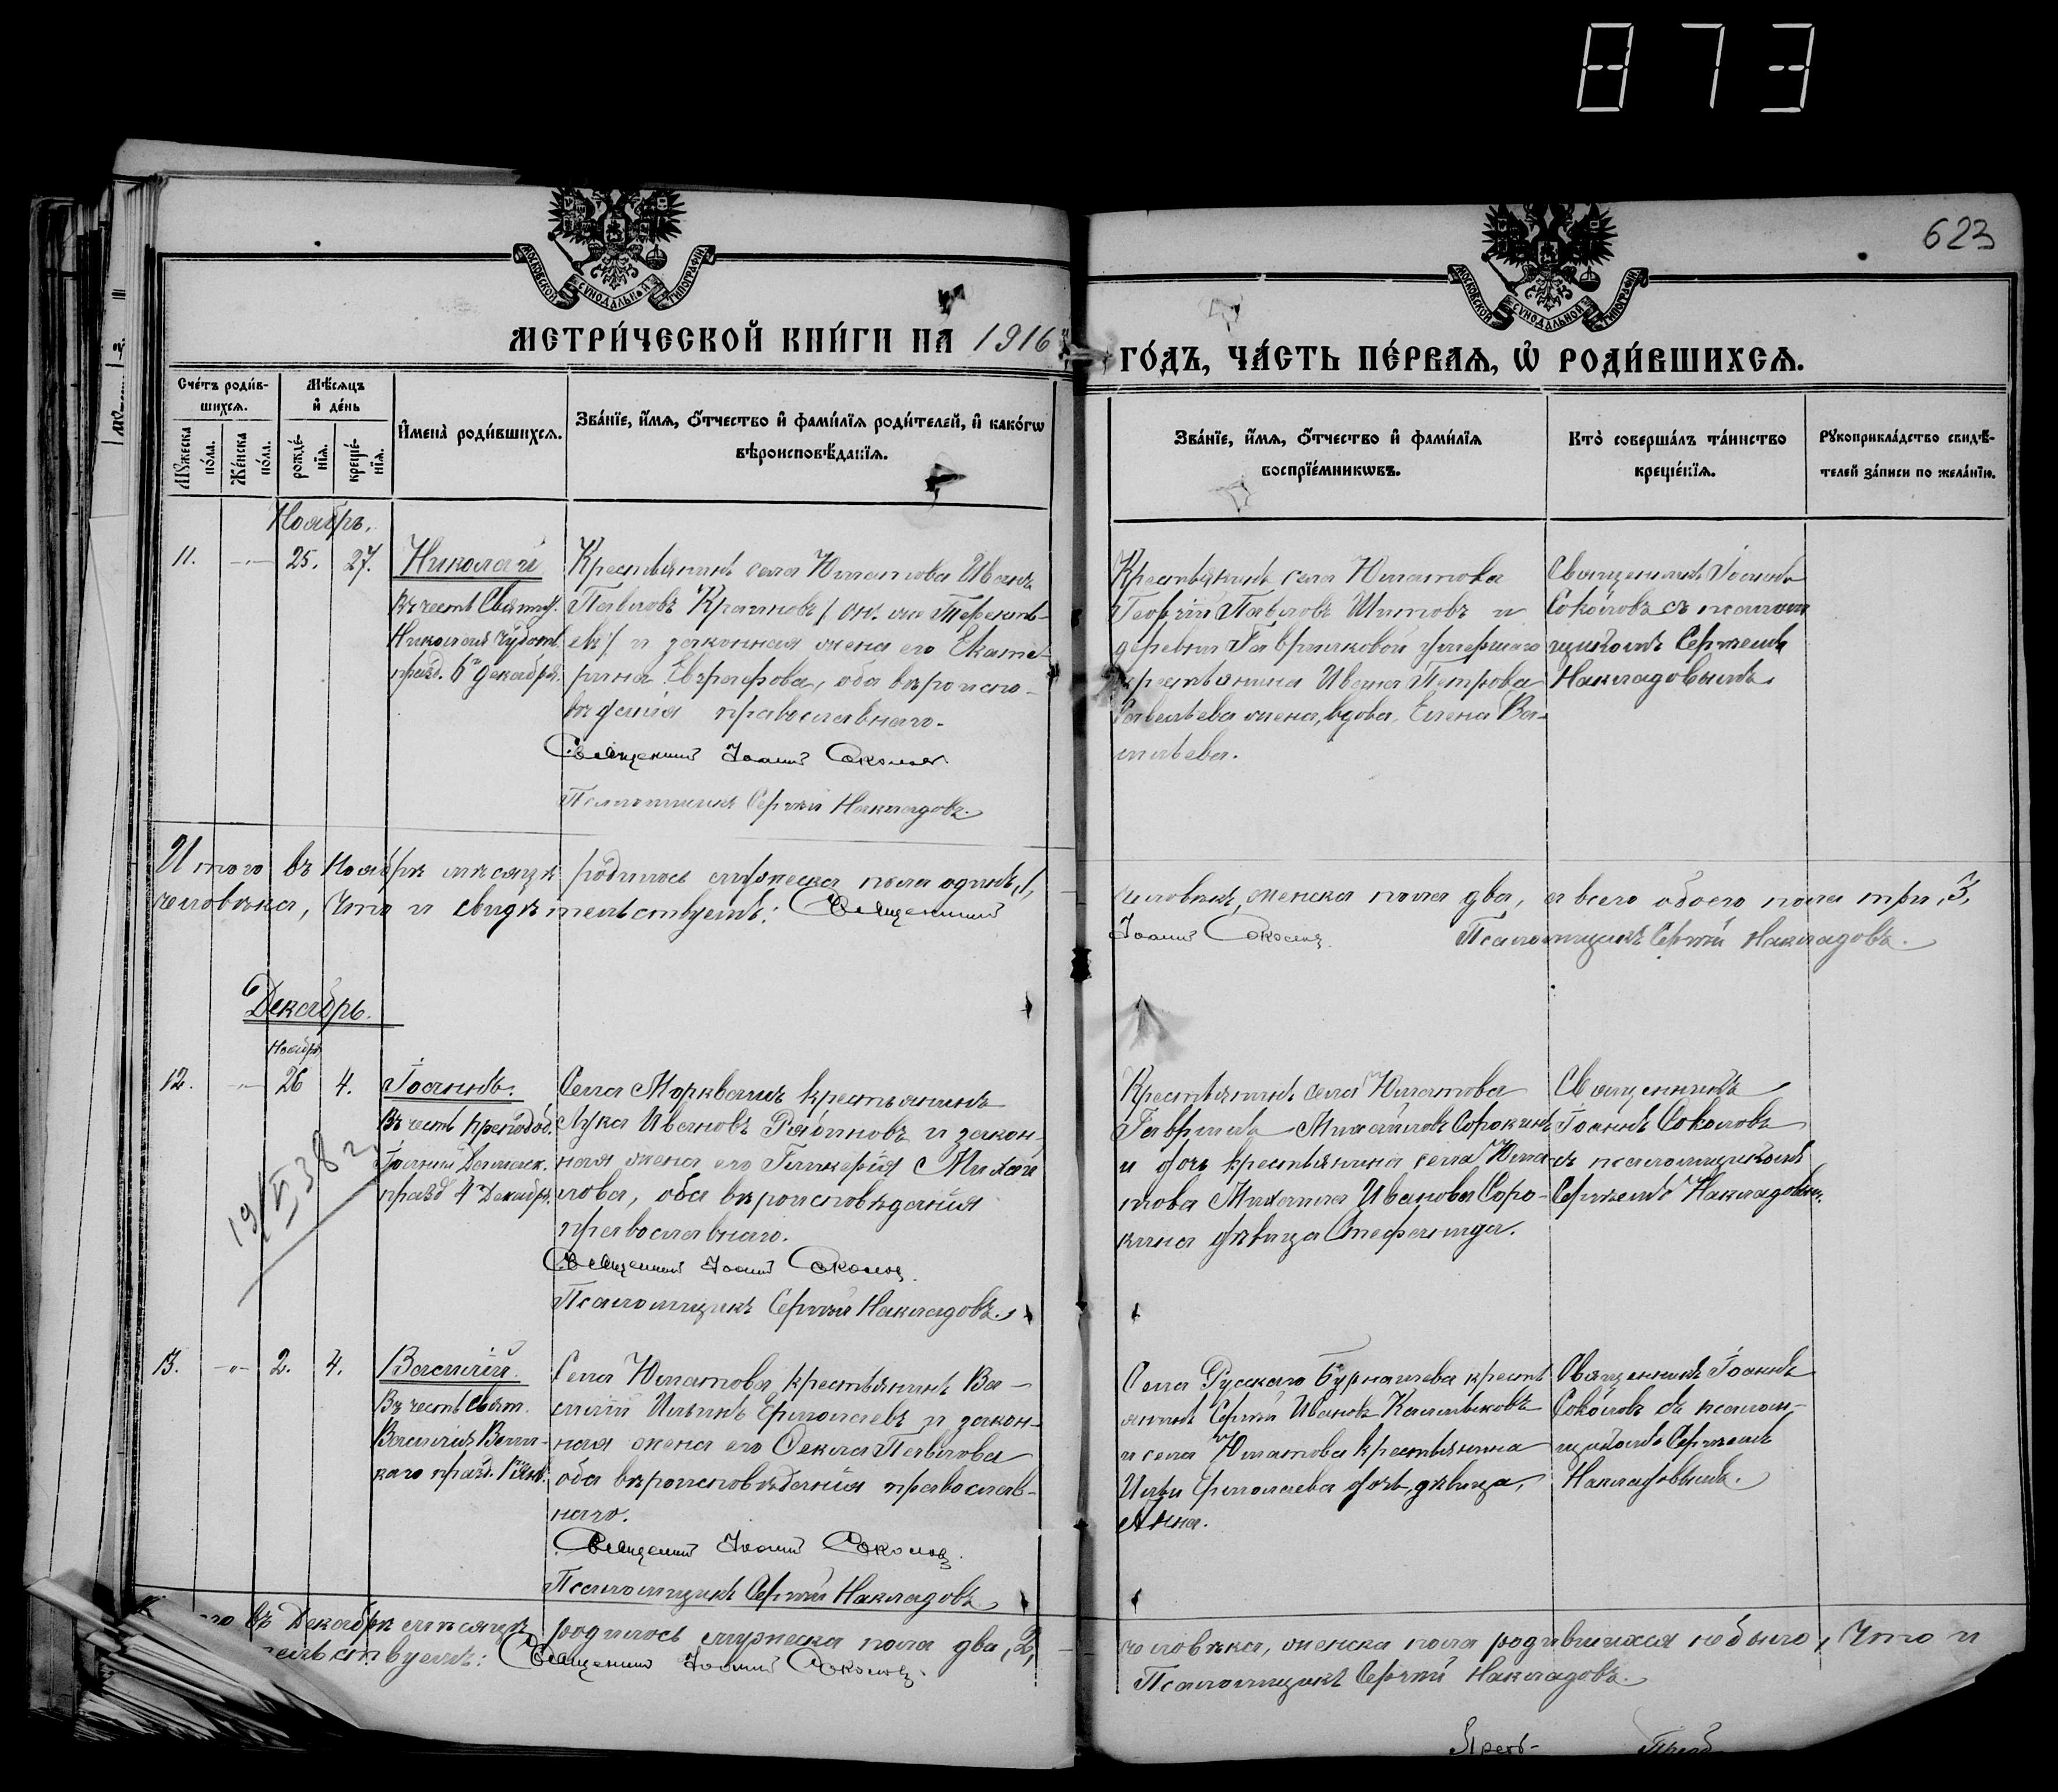 873
623
МОСКОВСКОЙ СѴНОДАЛЬНОЙ ТИПОГРАФИИ
МОСКОВСКОЙ СѴНОДАЛЬНОЙ ТИПОГРАФИИ
МЕТРИ́ЧЕСКОЙ КНИ́ГИ НА 1916
ГО́ДЪ, ЧА́СТЬ ПЕ́РВАЯ, Ѽ РОДИ́ВШИХСЯ.
Сче́тъ роди́в-
шихся.
Мѣ́сяцъ
и҆ де́нь
Мꙋ́жеска по́ла.
Же́нска по́ла.
рожде́-
нїя.
креще́-
нїя.
И҆мена̀ роди́вшихся.
Зва́нїе, и҆́мя, ѻ҆́тчество и҆ фами́лїя роди́телей, и҆ како́гѡ
вѣроисповѣ́данїя.
Зва́нїе, и҆́мя, ѻ҆́тчество и҆ фами́лїя
воспрїе́мникѡвъ.
Кто̀ соверша́лъ та́инство
креще́нїя.
Рꙋкоприкла́дство свидѣ́-
телей за́писи по жела́нїю.
Ноябрь.
11. 25. 27. Николай
Въ честь Святит.
Николая Чудотв.
празд. 6го Декабря.
Крестьянинъ села Юматова Иванъ
Павловъ
и законная жена его Екате-
рина Евграфова, оба вѣроиспо-
вѣданія православнаго.
Священникъ Іоаннъ Соколовъ.
Псаломщикъ Сергѣй Накладовъ.
Крестьянинъ села Юматова
Георгій Павловъ Шитовъ и
деревни Гавриловкой умершаго
крестьянина Ивана Петрова
Савельева жена, вдова, Елена Ва-
сильева.
Священникъ Іоаннъ
Соколовъ съ псалом
щикомъ Сергѣемъ
Накладовымъ.
Итого въ Ноябрѣ мѣсяцѣ родилось мужеска пола одинъ, 1,
человѣка, что и свидѣтельствуемъ: Священникъ
человѣкъ, женска пола два, а всего обоего пола три, 3,
Іоаннъ Соколовъ. Псаломщикъ Сергѣй Накладовъ.
Декабрь.
Ноября
12. 26 4. Іоаннъ.
Въ честь преподоб.
Іоанна Дамаск.
празд 4 Декабря.
19/VI 38 г
Села Моркваши крестьянинъ
Лука Ивановъ Рябиновъ и закон-
ная жена его Гликерія Михай
лова, оба вѣроисповѣданія
православнаго.
Священникъ Іоаннъ Соколовъ.
Псаломщикъ Сергѣй Накладовъ.
Крестьянинъ села Юматова
Гавріилъ Михайловъ Сорокинъ
и дочь крестьянина села Юма-
това Михаила Иванова Соро-
кина дѣвица Стефанида.
Священникъ
Іоаннъ Соколовъ
съ псаломщикомъ
Сергѣемъ Накладовым.
13. 2. 4. Василій.
Въ честь Свят.
Василія Вели-
каго празд. 1 Янв.
Села Юматова крестьянинъ Ва-
силій Ильинъ Ермолаевъ и закон-
ная жена его Ѳекла Павлова
оба вѣроисповѣданія православ-
наго.
Священникъ Іоаннъ Соколовъ.
Псаломщикъ Сергѣй Накладовъ.
Села Русскаго Бурнашева кресть
янинъ Сергѣй Ивановъ Калмыковъ
и села Юматова крестьянина
Ильи Ермолаева дочь, дѣвица,
Анна.
Священникъ Іоаннъ
Соколовъ съ псалом-
щикомъ Сергѣемъ
Накладовымъ.
въ Декабрѣ мѣсяцѣ родилось мужеска пола два, 2,
Священникъ Іоаннъ Соколовъ.
человѣка, женска пола родившихся не было, что и
Псаломщикъ Сергѣй Накладовъ.